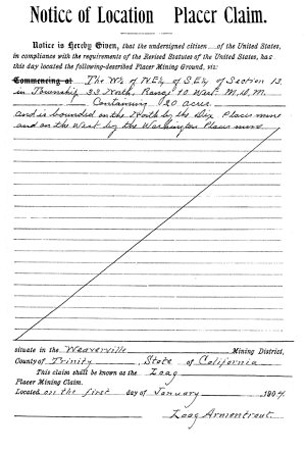 Notice of Location Placer Claim.
Notice is Hereby Given, that the undersigned citizen of the United States,
in compliance with the requirements of the Revised Statutes of the United States, has
this day located the following-described Placer Mining Ground, viz:
Commencing at The W½ of N.E¼ of S.E¼ of Section 12
in Township 33 North, Range 10 West M.D.M.
Containing 120 acres
and is bounded on the North by the Dix Placer mine
and on the West by the Washington Placer mine
situate in the Weaverville Mining District,
County of Trinity, State of California
This claim shall be known as the Zaag
Placer Mining Claim.
Located on the first day of January 1904
Zaag Armentrout.